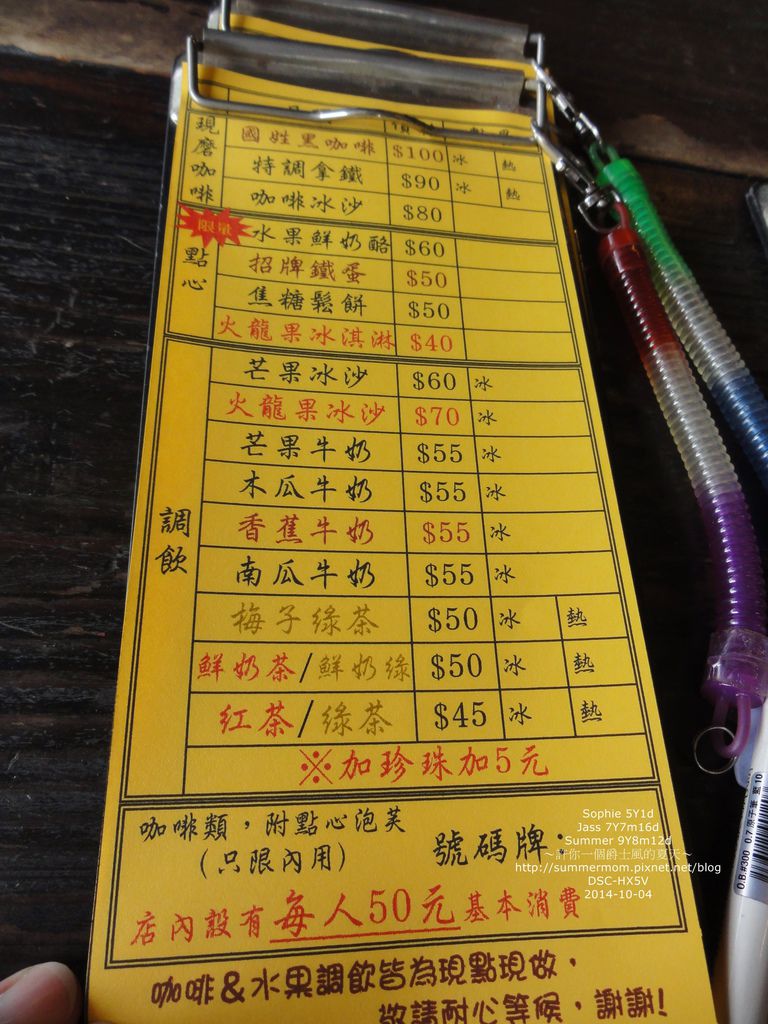 現磨咖啡
國姓黑咖啡 $100 冰 熱
特調拿鐵 $90 冰 熱
咖啡冰沙 $80
限量
點心
水果鮮奶酪 $60
招牌鐵蛋 $50
焦糖鬆餅 $50
火龍果冰淇淋 $40
調飲
芒果冰沙 $60 冰
火龍果冰沙 $70 冰
芒果牛奶 $55 冰
木瓜牛奶 $55 冰
香蕉牛奶 $55 冰
南瓜牛奶 $55 冰
梅子綠茶 $50 冰 熱
鮮奶茶/鮮奶綠 $50 冰 熱
紅茶/綠茶 $45 冰 熱
※加珍珠加5元
咖啡類，附點心泡芙
(只限內用)
號碼牌：
店內設有每人50元基本消費
咖啡&水果調飲皆為現點現做，
敬請耐心等候，謝謝!
Sophie 5Y1d
Jass 7Y7m16d
Summer 9Y8m12d
～許你一個爵士風的夏天～
http://summermom.pixnet.net/blog
DSC-HX5V
2014-10-04
O.B.#300 0.7